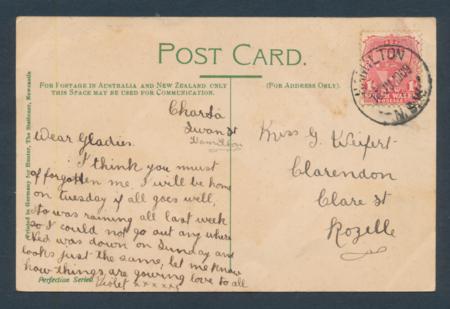 POST CARD.
FOR POSTAGE IN AUSTRALIA AND NEW ZEALAND ONLY
THIS SPACE MAY BE USED FOR COMMUNICATION.
(FOR ADDRESS ONLY.)
Printed in Germany for Hunter, The Stationer, Newcastle
Swan St
Hamilton
Dear Gladies.
I think you must
of forgotten me. I will be home
on Tuesday if all goes well,
to was raining all last week
so I could not go out any where
was down on Sunday and
looks just the same, let me know
how things are goving love to all
Violet xxxxx
Perfection Series
Miss G. Weifert.
Clarendon
Clare St
Rozelle
HAMILTON
N.S.W